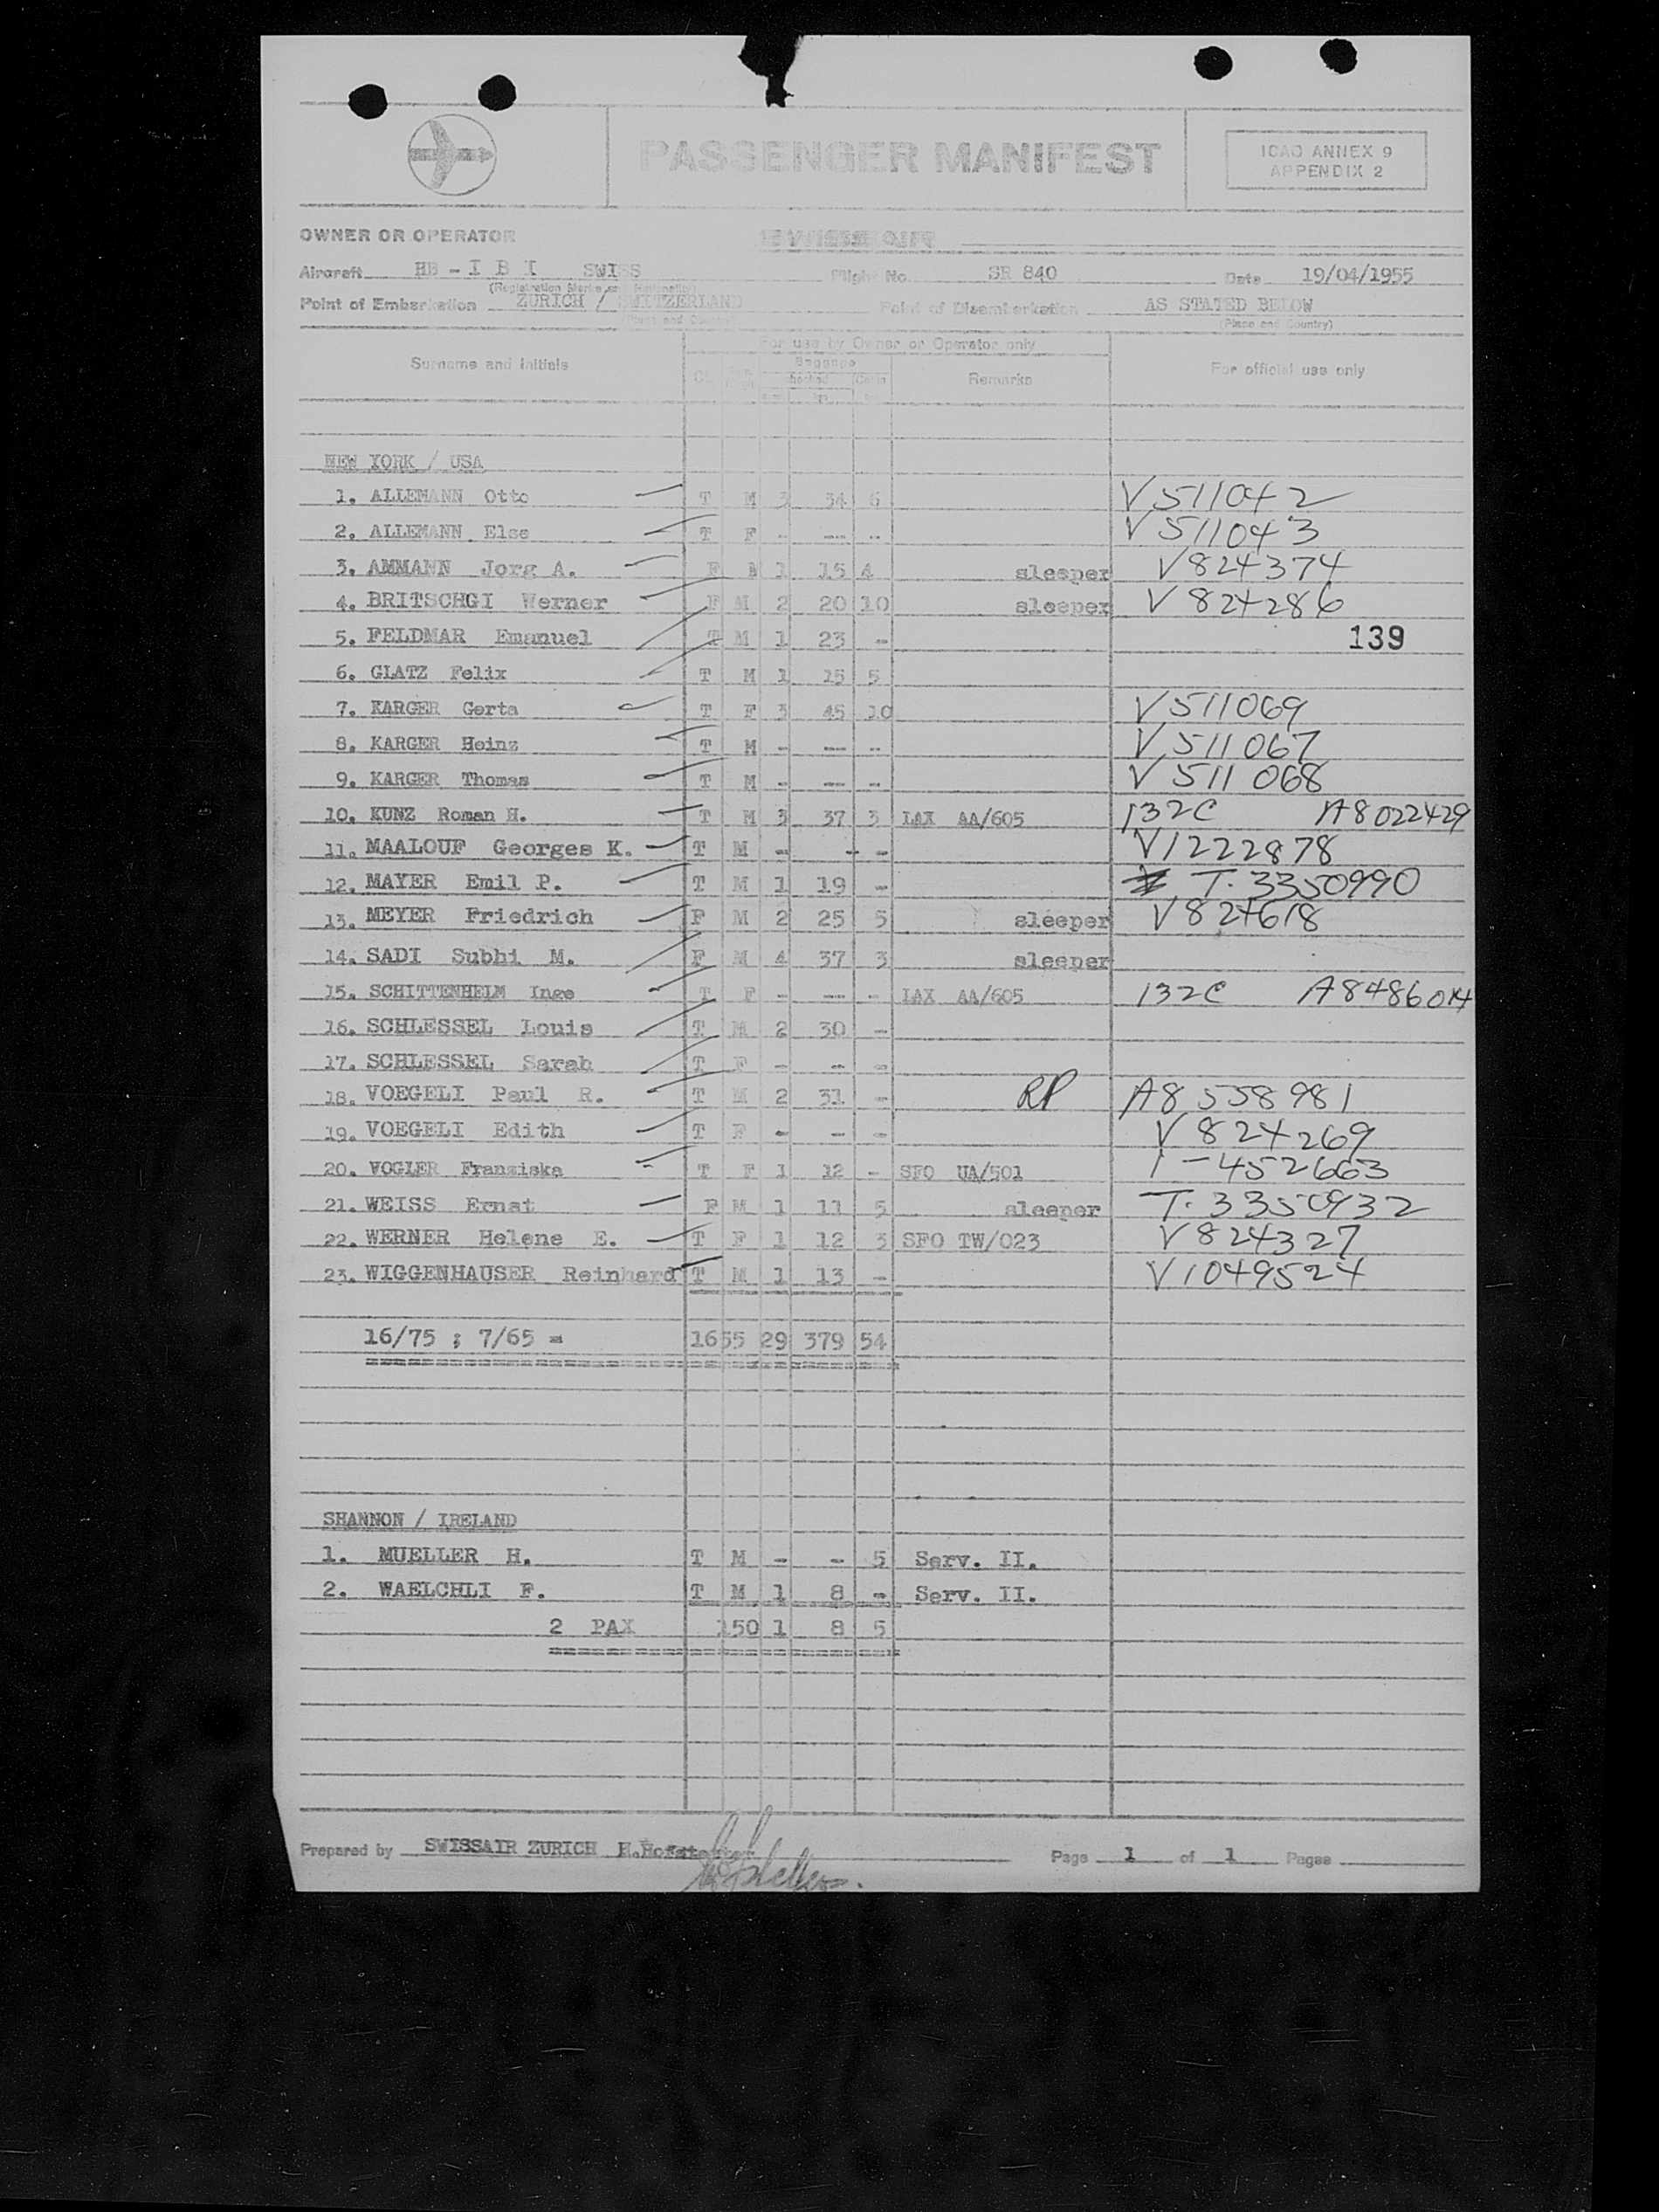 PASSENGER MANIFEST
ICAO ANNEX 9
APPENDIX 2
OWNER OR OPERATOR
Aircraft HB - I B I SWISS Flight No. SR 840 Date 19/04/1955
(Registration Marks and Nationality)
Point of Embarkation ZURICH / SWITZERLAND Point of Disembarkation AS STATED BELOW
(Place and Country) (Place and Country)
For use by Owner or Operator only
Surname and Initials Baggage Remarks For official use only
NEW YORK / USA
1. ALLEMANN Otto T M 3 34 6 V511042
2. ALLEMANN Else T F - --- -- V511043
3. AMMANN Jorg A. F M 1 15 4 sleeper V824374
4. BRITSCHGI Werner F M 2 20 10 sleeper V824286
5. FELDMAR Emanuel T M 1 23 - 139
6. GLATZ Felix T M 1 15 5
7. KARGER Gerta T F 3 45 10 V511069
8. KARGER Heinz T M - --- -- V511067
9. KARGER Thomas T M - --- - V511068
10. KUNZ Roman H. T M 3 37 3 LAX AA/605 132C A8022429
11. MAALOUF Georges K. T M - - - V1222878
12. MAYER Emil P. T M 1 19 - T.3350990
13. MEYER Friedrich F M 2 25 5 sleeper V824618
14. SADI Subhi M. F M 4 37 3 sleeper
15. SCHITTENHELM Inge T F - --- - LAX AA/605 132C A8486014
16. SCHLESSEL Louis T M 2 30 -
17. SCHLESSEL Sarah T F - - -
18. VOEGELI Paul R. T M 2 31 - RP A8558981
19. VOEGELI Edith T F - - - V824269
20. VOGLER Franziska T F 1 12 - SFO UA/501 1-452663
21. WEISS Ernst F M 1 11 5 sleeper T.3350932
22. WERNER Helene E. T F 1 12 3 SFO TW/023 V824327
23. WIGGENHAUSER Reinhard T M 1 13 - V1049524
16/75 ; 7/65 = 1655 29 379 54
SHANNON / IRELAND
1. MUELLER H. T M - - 5 Serv. II.
2. WAELCHLI F. T M 1 8 - Serv. II.
2 PAX 150 1 8 5
Prepared by SWISSAIR ZURICH Page 1 of 1 Pages